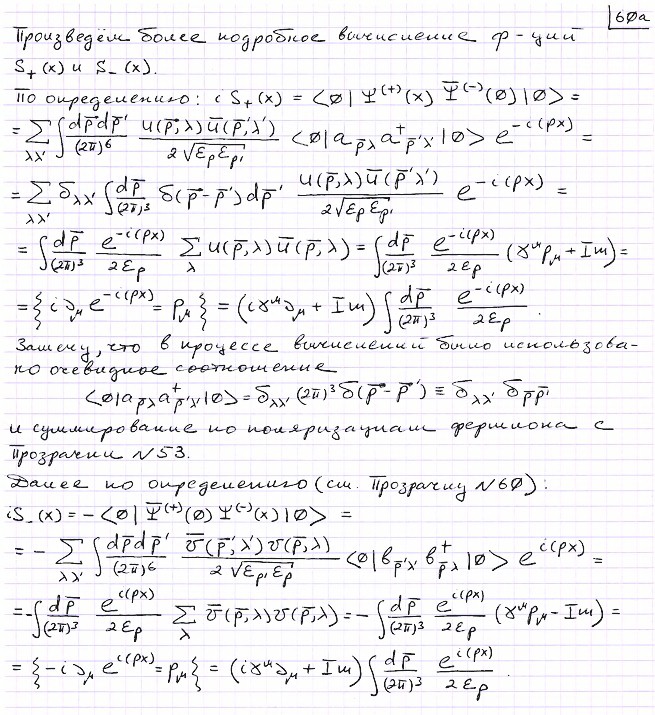 60a
Произведём более подробное вычисление ф-ций
S₊(x) и S₋(x).
По определению: i S₊(x) = <0| Ψ⁽⁺⁾(x) Ψ̄⁽⁻⁾(0) |0> =
= ∑_{λλ'} ∫ dp̄dp̄'/(2π)⁶ u(p̄,λ)ū(p̄',λ')/(2√(ε_p ε_p')) <0|a_{p̄λ} a⁺_{p̄'λ'}|0> e^{-i(px)} =
= ∑_{λλ'} δ_{λλ'} ∫ dp̄/(2π)³ δ(p̄-p̄')dp̄' u(p̄,λ)ū(p̄'λ')/(2√(ε_p ε_p')) e^{-i(px)} =
= ∫ dp̄/(2π)³ e^{-i(px)}/(2ε_p) ∑_λ u(p̄,λ)ū(p̄,λ) = ∫ dp̄/(2π)³ e^{-i(px)}/(2ε_p) (γ^μ p_μ + Im) =
= { i∂_μ e^{-i(px)} = p_μ } = (iγ^μ ∂_μ + Im) ∫ dp̄/(2π)³ e^{-i(px)}/(2ε_p).
Замечу, что в процессе вычислений было использова-
но очевидное соотношение
<0|a_{p̄λ} a⁺_{p̄'λ'}|0> = δ_{λλ'} (2π)³ δ(p̄-p̄') ≡ δ_{λλ'} δ_{p̄p̄'}
и суммирование по поляризациям фермиона с
Прозрачки №53.
Далее по определению (см. Прозрачку №60):
iS₋(x) = - <0| Ψ̄⁽⁺⁾(0) Ψ⁽⁻⁾(x) |0> =
= - ∑_{λλ'} ∫ dp̄dp̄'/(2π)⁶ v̄(p̄',λ')v(p̄,λ)/(2√(ε_p' ε_p)) <0|b_{p̄'λ'} b⁺_{p̄λ}|0> e^{i(px)} =
= - ∫ dp̄/(2π)³ e^{i(px)}/(2ε_p) ∑_λ v̄(p̄,λ)v(p̄,λ) = - ∫ dp̄/(2π)³ e^{i(px)}/(2ε_p) (γ^μ p_μ - Im) =
= { -i∂_μ e^{i(px)} = p_μ } = (iγ^μ ∂_μ + Im) ∫ dp̄/(2π)³ e^{i(px)}/(2ε_p).